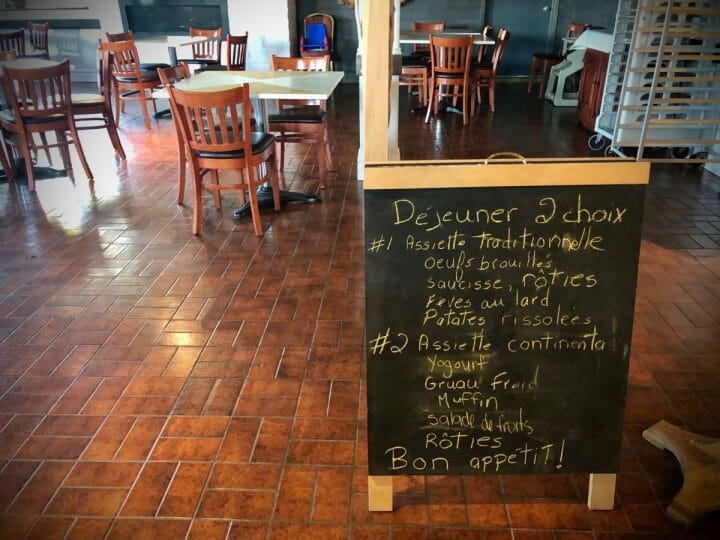 Déjeuner 2 choix
#1 Assiette traditionnelle
oeufs brouillés
saucisse, rôties
Fèves au lard
Patates rissolées
#2 Assiette continenta
Yogourt
Gruau Froid
Muffin
salade de fruits
Rôties
Bon appétit!